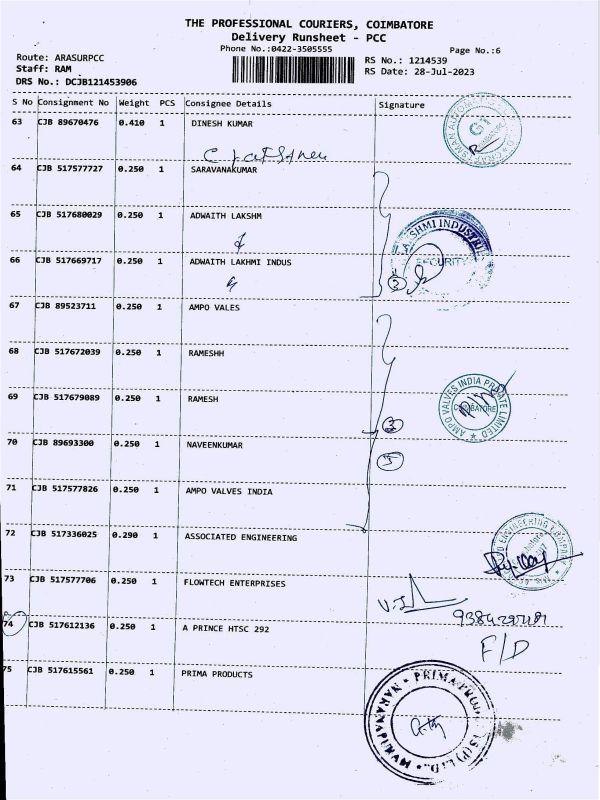 THE PROFESSIONAL COURIERS, COIMBATORE
Delivery Runsheet - PCC
Phone No.:0422-3505555
Page No.:6
Route: ARASURPCC
RS No.: 1214539
Staff: RAM
RS Date: 28-Jul-2023
DRS No.: DCJB121453906
S No Consignment No Weight PCS Consignee Details Signature
63 CJB 89670476 0.410 1 DINESH KUMAR
64 CJB 517577727 0.250 1 SARAVANAKUMAR
65 CJB 517680029 0.250 1 ADWAITH LAKSHM
66 CJB 517669717 0.250 1 ADWAITH LAKHMI INDUS
SECURITY
2
67 CJB 89523711 0.250 1 AMPO VALES
68 CJB 517672039 0.250 1 RAMESHH
69 CJB 517679089 0.250 1 RAMESH
AMPO VALVES INDIA PRIVATE LIMITED
COIMBATORE
3
70 CJB 89693300 0.250 1 NAVEENKUMAR
5
71 CJB 517577826 0.250 1 AMPO VALVES INDIA
72 CJB 517336025 0.290 1 ASSOCIATED ENGINEERING
73 CJB 517577706 0.250 1 FLOWTECH ENTERPRISES
74 CJB 517612136 0.250 1 A PRINCE HTSC 292
F/D
75 CJB 517615561 0.250 1 PRIMA PRODUCTS